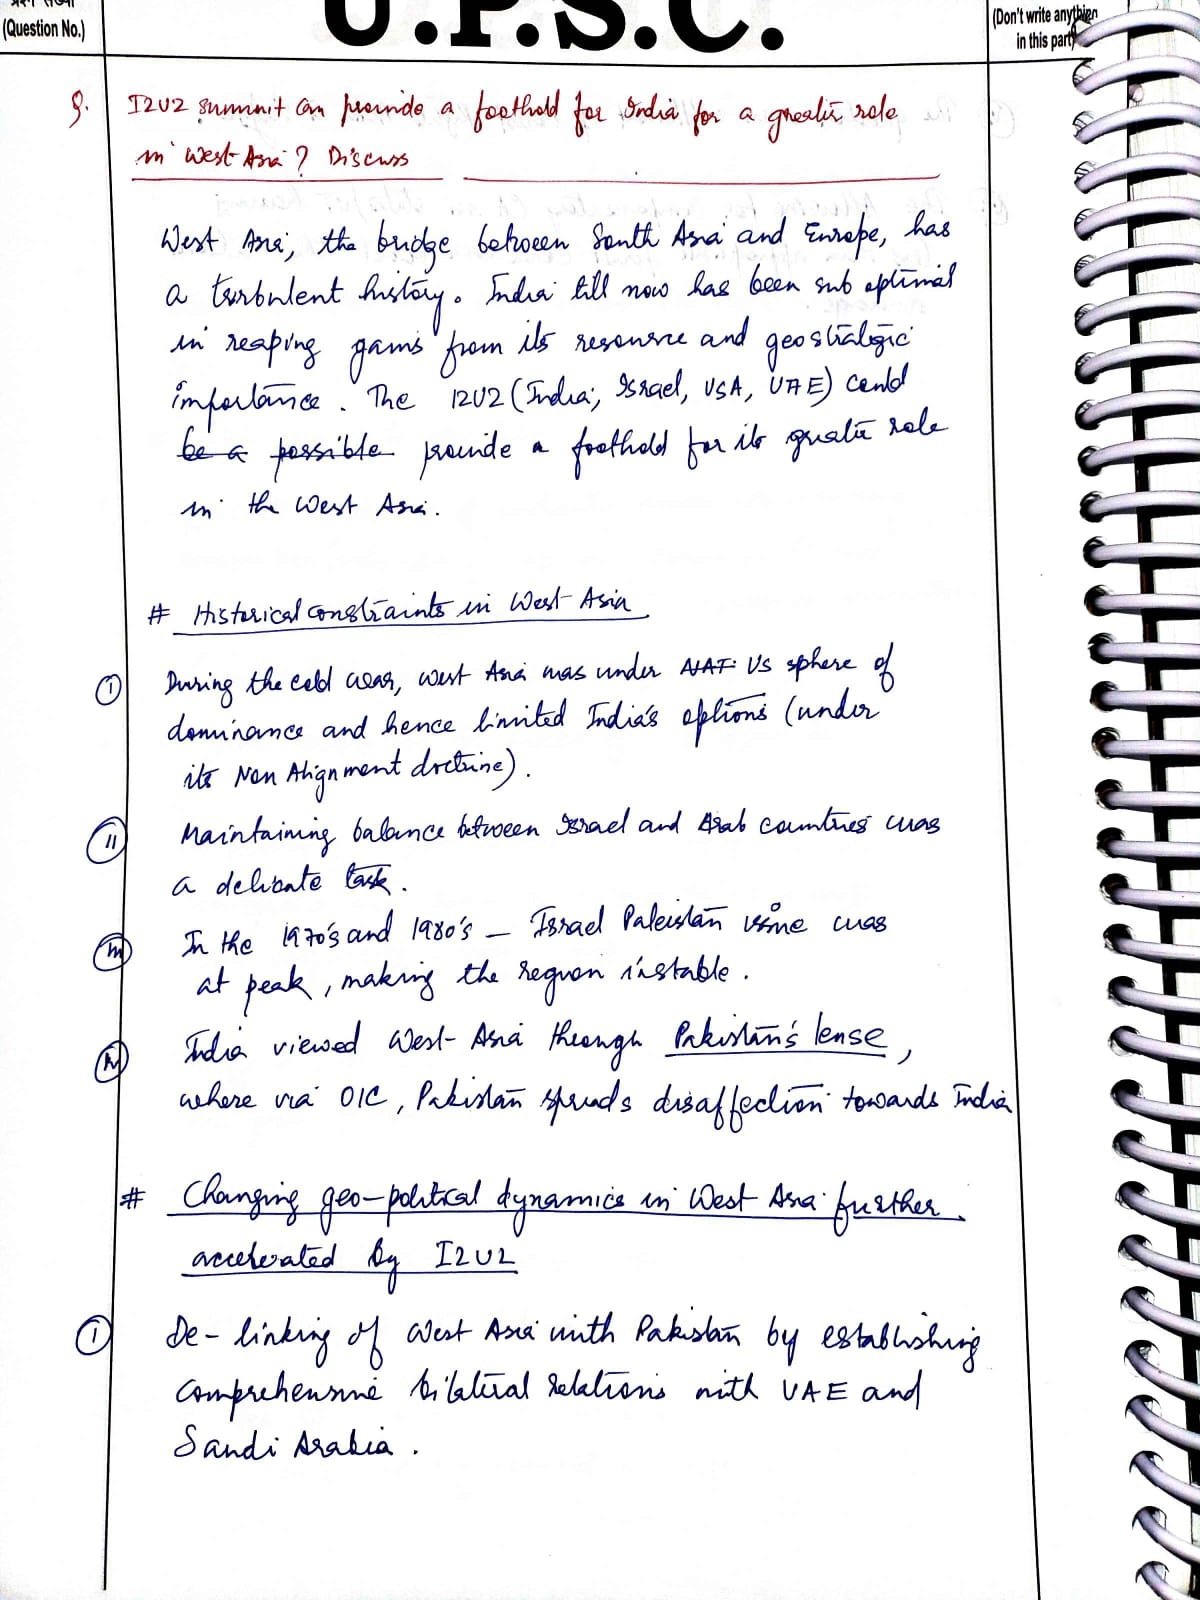 प्रश्न संख्या
(Question No.)
U.P.S.C.
(Don't write anything
in this part)
Q. I2U2 summit can provide a foothold for India for a greater role
in West Asia? Discuss
West Asia, the bridge between South Asia and Europe, has
a turbulent history. India till now has been sub optimal
in reaping gains from its resource and geostrategic
importance. The I2U2 (India, Israel, USA, UAE) could
be a possible provide a foothold for its greater role
in the West Asia.
# Historical constraints in West Asia
(I) During the cold war, West Asia was under NAT US sphere of
dominance and hence limited India's options (under
its Non Alignment doctrine).
(II) Maintaining balance between Israel and Arab countries was
a delicate task.
(III) In the 1970's and 1980's – Israel Palestan was
at peak, making the region instable.
(IV) India viewed West-Asia through Pakistan's lense,
where via OIC, Pakistan spreads disaffection towards India
# Changing geo-political dynamics in West Asia further
accelerated by I2U2
(I) De-linking of West Asia with Pakistan by establishing
comprehensive bilateral relations with UAE and
Saudi Arabia.